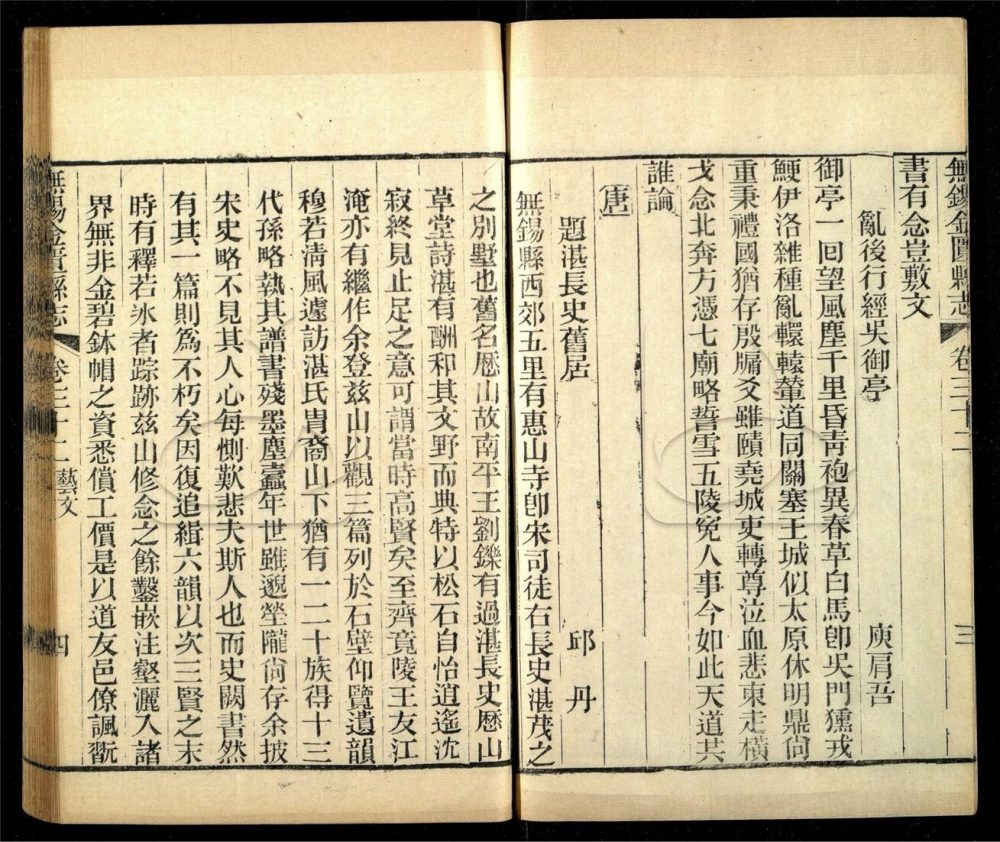 無錫金匱縣志 卷三十二 三
書有念豈敷文
亂後行經吳御亭 庾肩吾
御亭一回望風塵千里昏靑袍異春草白馬卽吳門獯戎
鯁伊洛雜種亂轘轅輦道同關塞王城似太原休明鼎尙
重秉禮國猶存殷牖爻雖賾堯城吏轉尊泣血悲東走橫
戈念北奔方憑七廟略誓雪五陵寃人事今如此天道共
誰論
唐
題湛長史舊居 邱丹
無錫縣西郊五里有惠山寺卽宋司徒右長史湛茂之
之別墅也舊名厯山故南平王劉鑠有過湛長史厯山
草堂詩湛有酬和其文野而典特以松石自怡逍遙沈
寂終見止足之意可謂當時高賢矣至齊竟陵王友江
淹亦有繼作余登兹山以觀三篇列於石壁仰覽遺韻
穆若淸風遽訪湛氏胄裔山下猶有一二十族得十三
代孫略執其譜書殘墨塵蠹年世雖邈塋隴尙存余披
宋史略不見其人心每惻歎悲夫斯人也而史闕書然
有其一篇則爲不朽矣因復追緝六韻以次三賢之末
時有釋若氷者踪跡兹山修念之餘鑿嵌注壑灑入諸
界無非金碧鉢帽之資悉償工價是以道友邑僚諷翫
無錫金匱縣志 卷三十二 藝文 四